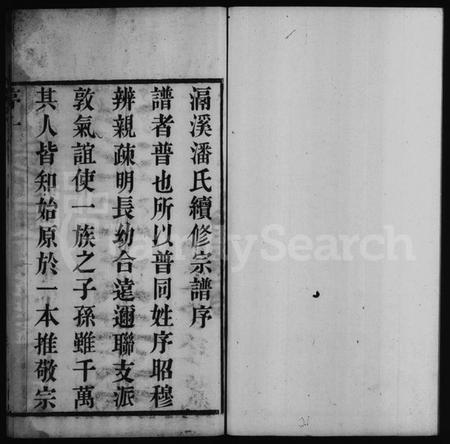 滆溪潘氏續修宗譜序
譜者普也所以普同姓序昭穆
辨親疎明長幼合遠邇聯支派
敦氣誼使一族之子孫雖千萬
其人皆知始原於一本推敬宗
序一
FamilySearch